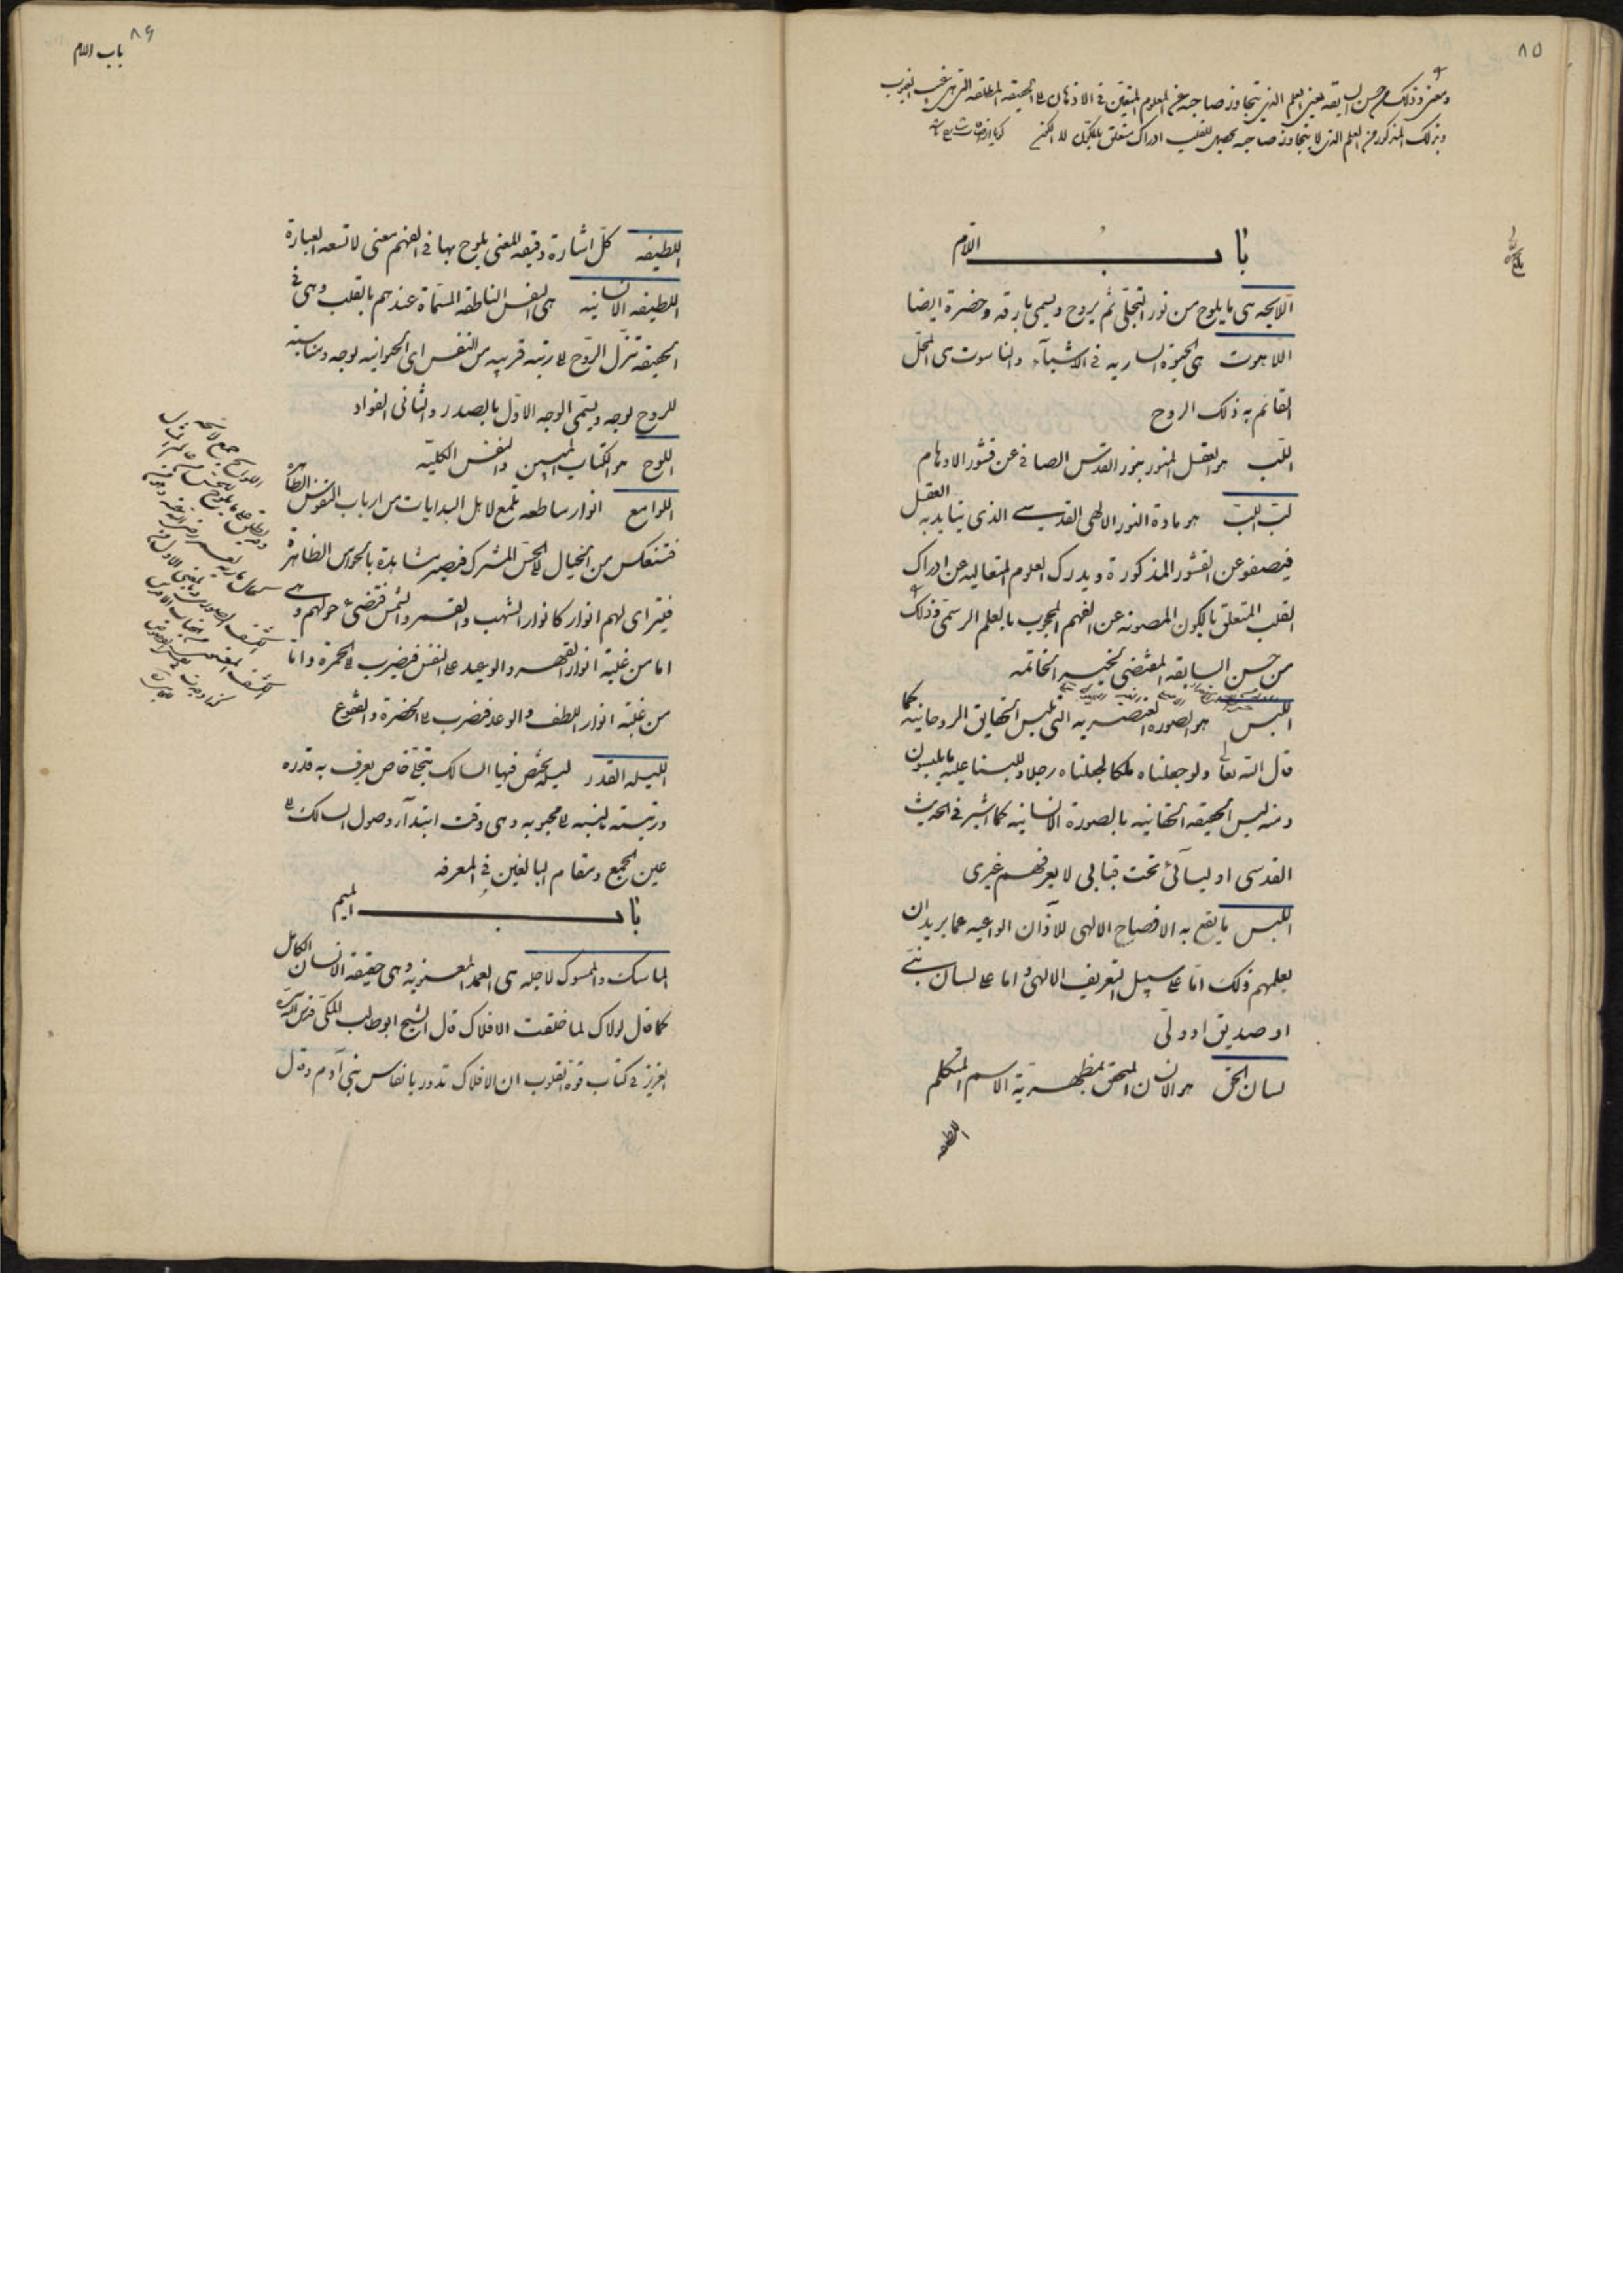 ٨٥
ومعنى وذلك من حسن السابقه يعنى العلم الذى يتجاوز صاحبه عن المعلوم المتعين فى الاذهان الى الحقيقه المطلقه التى هى غيب الغيوب
وبذلك المذكور من العلم الذى لا يتجاوز صاحبه يحصل للقلب ادراك متعلق بالكون
باب اللام
اللايحه هى ما يلوح من نور التجلى ثم يروح ويسمى بارقه وخضرة ايضا
اللاهوت هى الحيوة الساريه فى الاشيآء والناسوت هى المحل
القائم به ذلك الروح
اللب هو العقل المنور بنور القدس الصافى عن قشور الاوهام
لب اللب هو مادة النور الالهى القدسى الذى يتايد به العقل
فيصفو عن القشور المذكورة ويدرك العلوم المتعاليه عن ادراك
القلب المتعلق بالكون المصونه عن الفهم المحجوب بالعلم الرسمى وذلك
من حسن السابقه المقتضى لخير الخاتمه
اللبس هو الصورة العنصريه التى تلبس الحقايق الروحانيه كما
قال الله تعالى ولو جعلناه ملكا لجعلناه رجلا وللبسنا عليهم ما يلبسون
ومنه لبس الحقيقه الحقانيه بالصورة الانسانيه كما اشير فى الحديث
القدسى اوليآئى تحت قبابى لا يعرفهم غيرى
اللسن ما يقع به الافصاح الالهى للآذان الواعيه عما يريد ان
يعلمهم وذلك اما على سبيل التعريف الالهى واما على لسان نبى
او صديق او ولى
لسان الحق هو الانسان المتحقق بمظهرية الاسم المتكلم
اللطيفه
٨٦
باب اللام
اللطيفه كل اشارة دقيقه المعنى يلوح بها فى الفهم معنى لا تسعه العبارة
اللطيفه الانسانيه هى النفس الناطقه المسماة عندهم بالقلب وهى فى
الحقيقه تنزل الروح الى رتبه قريبه من النفس اى الحيوانيه بوجه ومناسبة
للروح بوجه ويسمى الوجه الاول بالصدر والثانى الفواد
اللوح هو الكتاب المبين والنفس الكليه
اللوامع انوار ساطعه تلمع لاهل البدايات من ارباب النفوس الطاهرة
فتنعكس من الخيال الى الحس المشترك فيصير مشاهدة بالحواس الظاهرة
فيترآى لهم انوار كانوار الشهب والقمر والشمس فتضئ حولهم وهى
اما من غلبة انوار القهر والوعيد على النفس فيضرب الى الحمرة واما
من غلبة انوار اللطف والوعد فيضرب الى الخضرة والفقوع
الليله القدر ليلة يختص فيها السالك بتجلى خاص يعرف به قدره
ورتبته بالنسبه الى محبوبه وهى وقت ابتدآء وصول السالك الى
عين الجمع ومقام البالغين فى المعرفه
باب الميم
الماسك والممسوك لاجله هى العمد المعنويه وهى حقيقة الانسان الكامل
كما قال لولاك لما خلقت الافلاك قال الشيخ ابوطالب المكى قدس الله سره
العزيز فى كتاب قوة القلوب ان الافلاك تدور بانفاس بنى آدم وقال
اللوايح جمع لايحه